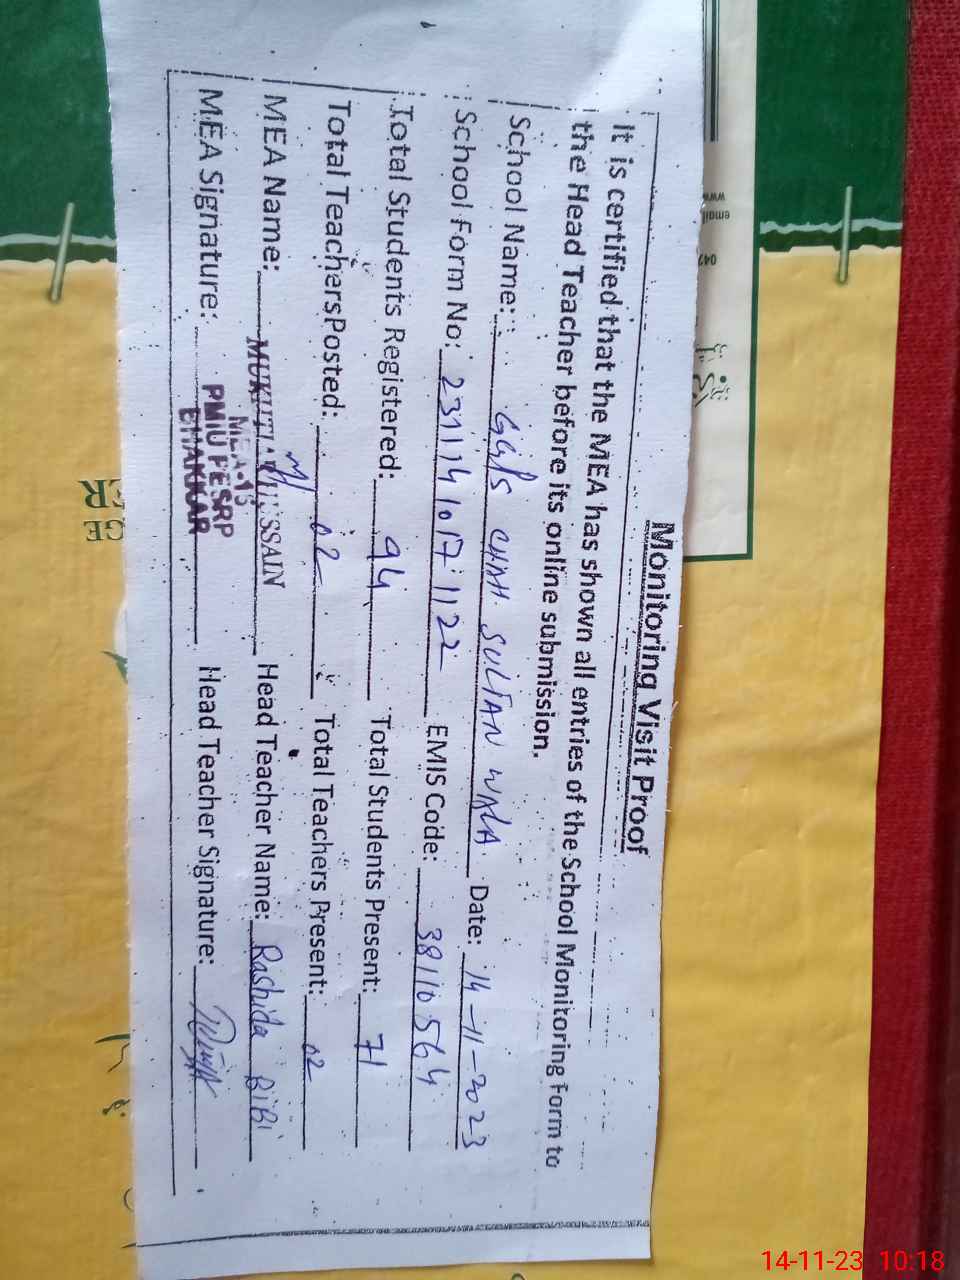 Monitoring Visit Proof
It is certified that the MEA has shown all entries of the School Monitoring Form to
the Head Teacher before its online submission.
School Name: GGPS CHAH SULTAN WALA Date: 14-11-2023
School Form No: 23111410171122 EMIS Code: 38110564
Total Students Registered: 94 Total Students Present: 71
Total Teachers Posted: 02 Total Teachers Present: 02
MEA Name: HUSSAIN Head Teacher Name: Rashida BiBi
MEA Signature: Head Teacher Signature:
MEA-15
PMIU PESRP
BHAKKAR
www
email
047
14-11-23 10:18